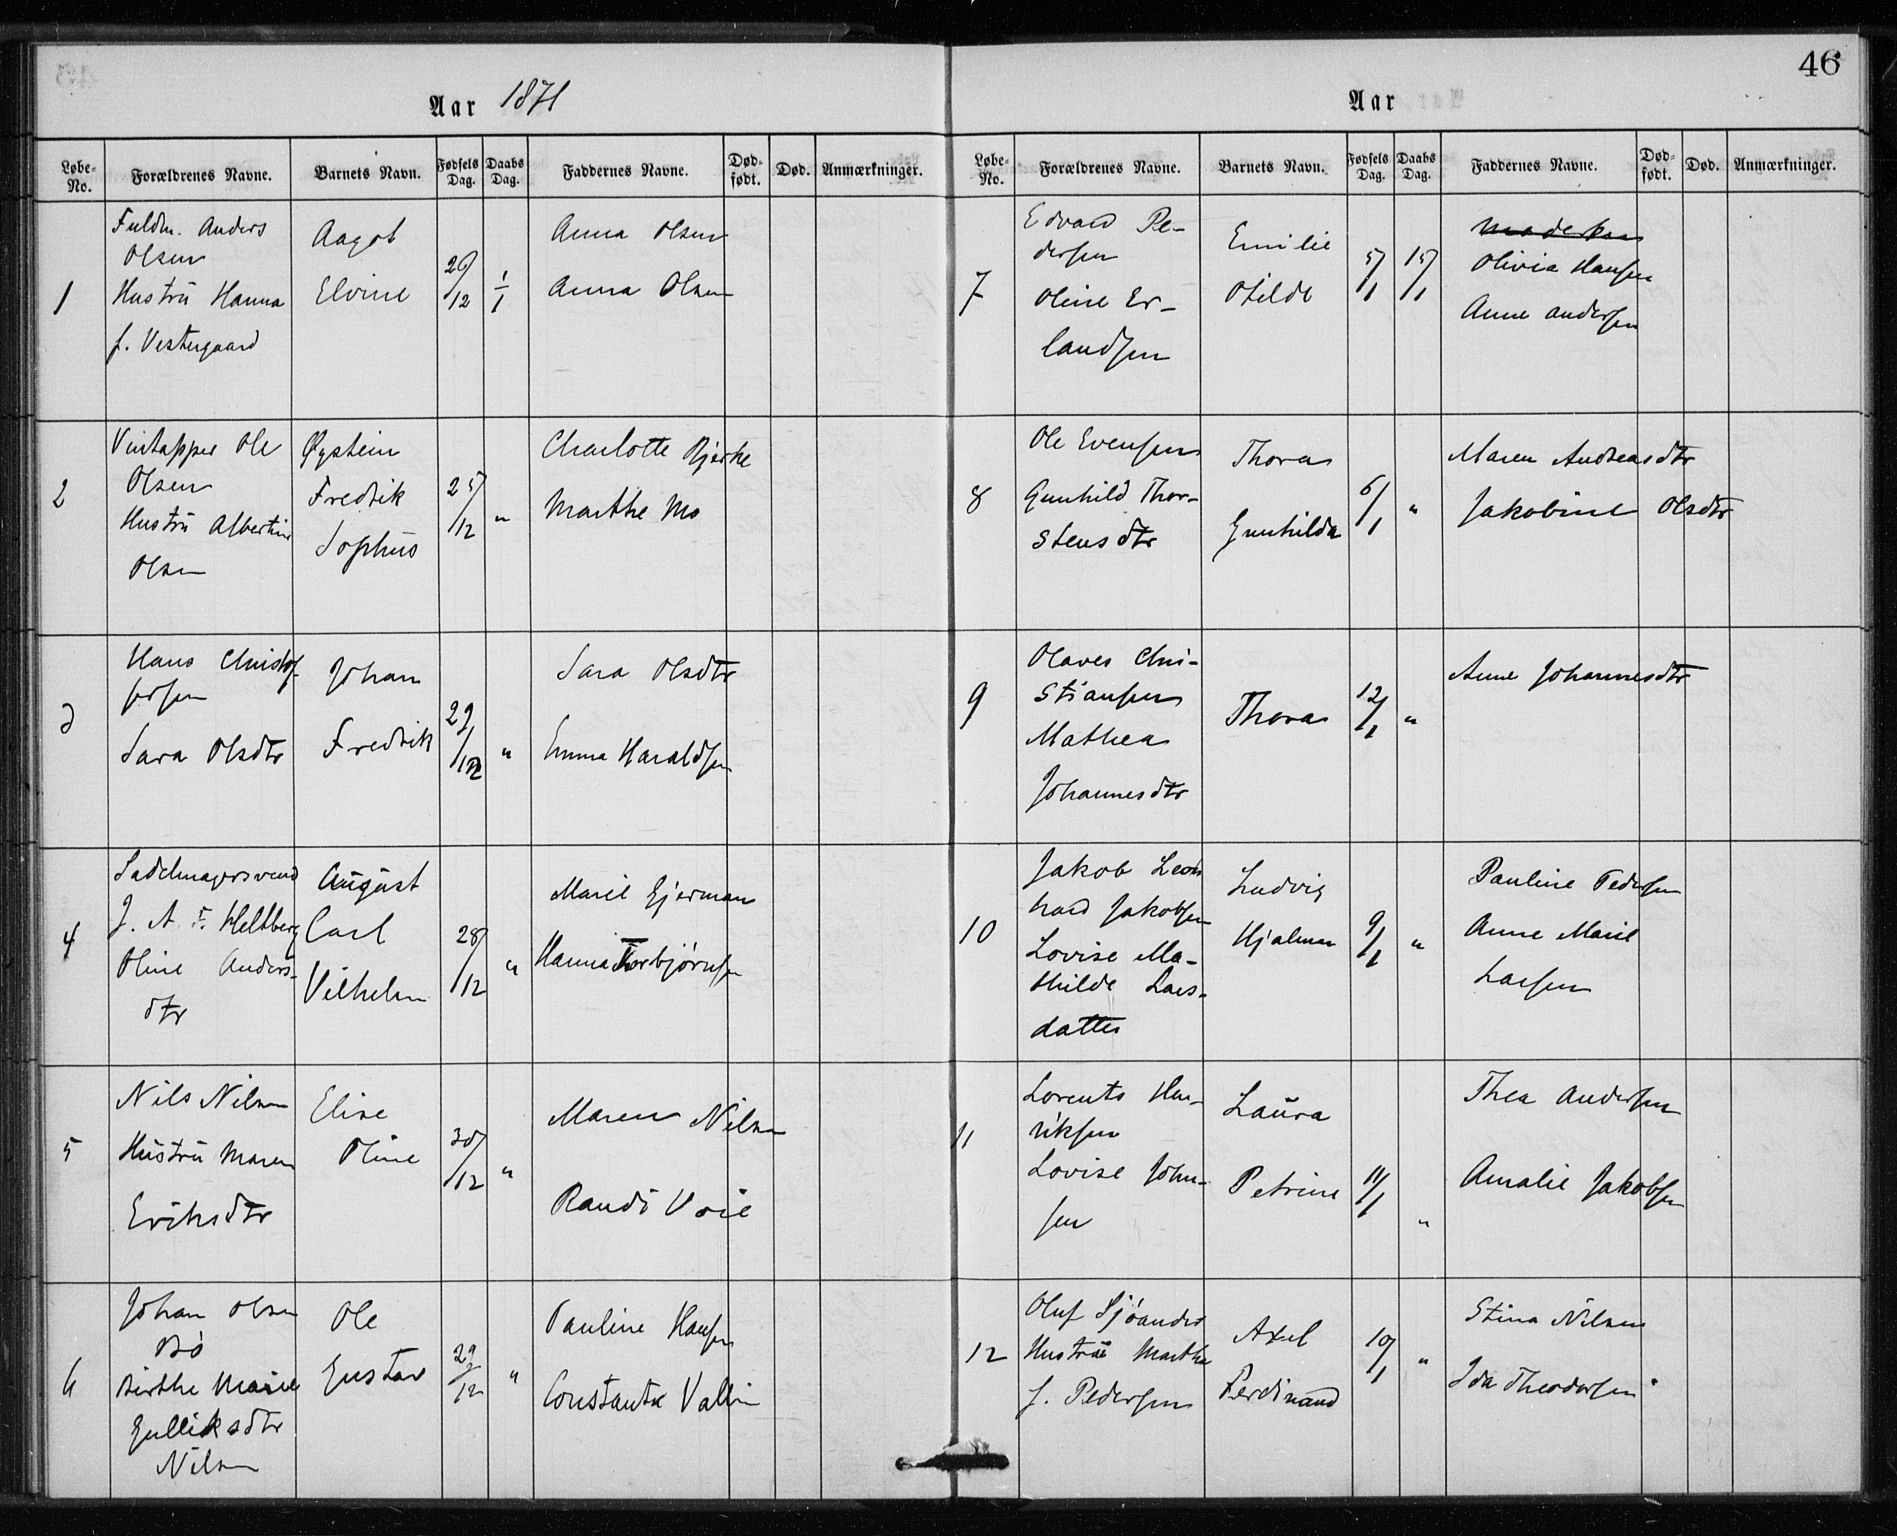 46
Aar 1871
Løbe-No. Forældrenes Navne. Barnets Navn. Fødsels Dag. Daabs Dag. Faddernes Navne. Død-født. Død. Anmærkninger.
1
Fuldm. Anders
Olsen
Hustrü Hanna
f. Vestergaard
Aagot
Elvine
26/12
1/1
Anna Olsen
Anna Olsen
2
Vintapper Ole
Olsen
Hustrü Albertine
Olsen
Øystein
Fredrik
Sophus
25/12
"
Charlotte Bjerke
Marthe Mo
3
Hans Christof-
fersen
Sara Olsdtr
Johan
Fredrik
29/12
"
Sara Olsdtr
Emma Haraldsen
4
Sadelmagersvend
J. A. F. Heltberg
Oline Anders-
dtr
Aügüst
Carl
Vilhelm
28/12
"
Marie Gjerman
Hanna Torbjørnsen
5
Nils Nilsen
Hüstrü Maren
Eriksdtr
Elise
Oline
30/12
"
Maren Nilsen
Randi Voie
6
Johan Olsen
Bö
Berthe Marie
Gulliksdtr
Nilsen
Ole
Gustav
29/12
"
Pauline Hansen
Constantse Vallin
Aar
Løbe-No. Forældrenes Navne. Barnets Navn. Fødsels Dag. Daabs Dag. Faddernes Navne. Død-født. Død. Anmærkninger.
7
Edvard Pe-
dersen
Oline Er-
landsen
Emilie
Otilde
5/1
15/1
Moderen
Olivia Hansen
Anne Andersen
8
Ole Evensen
Gunhild Thor-
stensdtr
Thora
Gunhilda
6/1
"
Maren Andreasdtr
Jakobine Olsdtr
9
Olaves Chri-
stiansen
Mathea
Johannesdtr
Thora
12/1
"
Anne Johannesdtr
10
Jakob Leon
hard Jakobsen
Lovise Ma-
thilde Lars-
datter
Ludvig
Hjalmar
9/1
"
Pauline Pedersen
Anne Marie
Larsen
11
Lorents Hen-
riksen
Lovise John-
sen
Laüra
Petrine
11/1
"
Thea Andersen
Amalie Jakobsen
12
Oluf Sjöander
Hustrü Marthe
f. Pedersen
Axel
Ferdinand
10/1
"
Stina Nilsen
Ida Theodorsen